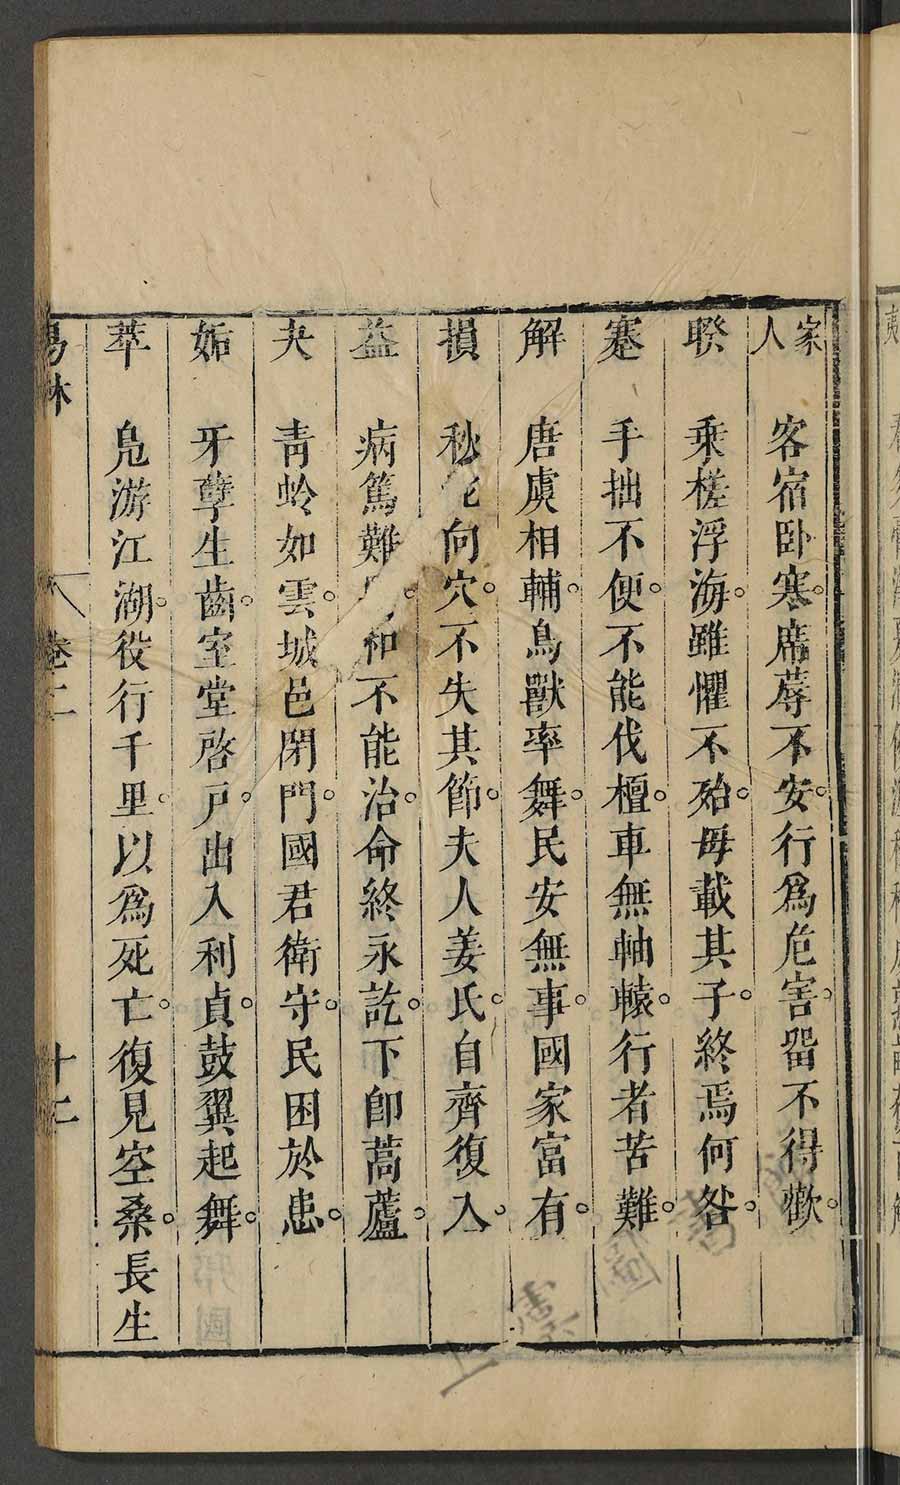 家人　客宿卧寒。席蓐不安。行爲危害。畱不得歡。
睽　乘槎浮海。雖懼不殆。毋載其子。終焉何咎。
蹇　手拙不便。不能伐檀。車無軸轅。行者苦難。
解　唐虞相輔。鳥獸率舞。民安無事。國家富有。
損　秋向穴。不失其節。夫人姜氏。自齊復入。
益　病篤難。和不能治。命終永訖。下卽蒿廬。
夬　青蛉如雲。城邑閉門。國君衛守。民困於患。
姤　牙孽生齒。室堂啓戸。出入利貞。鼓翼起舞。
萃　鳧游江湖。役行千里。以爲死亡。復見空桑。長生
易林　卷二　十二